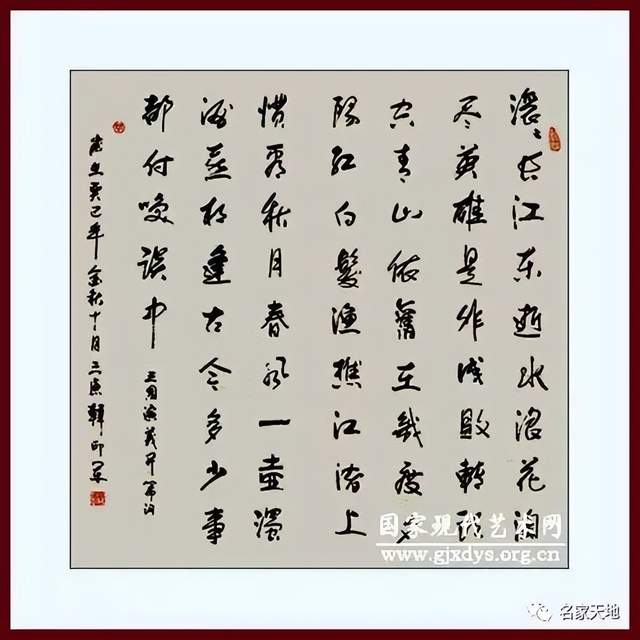 滚滚长江东逝水浪花淘
尽英雄是非成败轉头
空青山依舊在幾度夕
陽红白髮渔樵江渚上
惯看秋月春风一壶濁
酒喜相逢古今多少事
都付笑谈中
三国演義开篇词
癸巳年金秋十月
国家现代艺术网
www.gjxdys.org.cn
名家天地